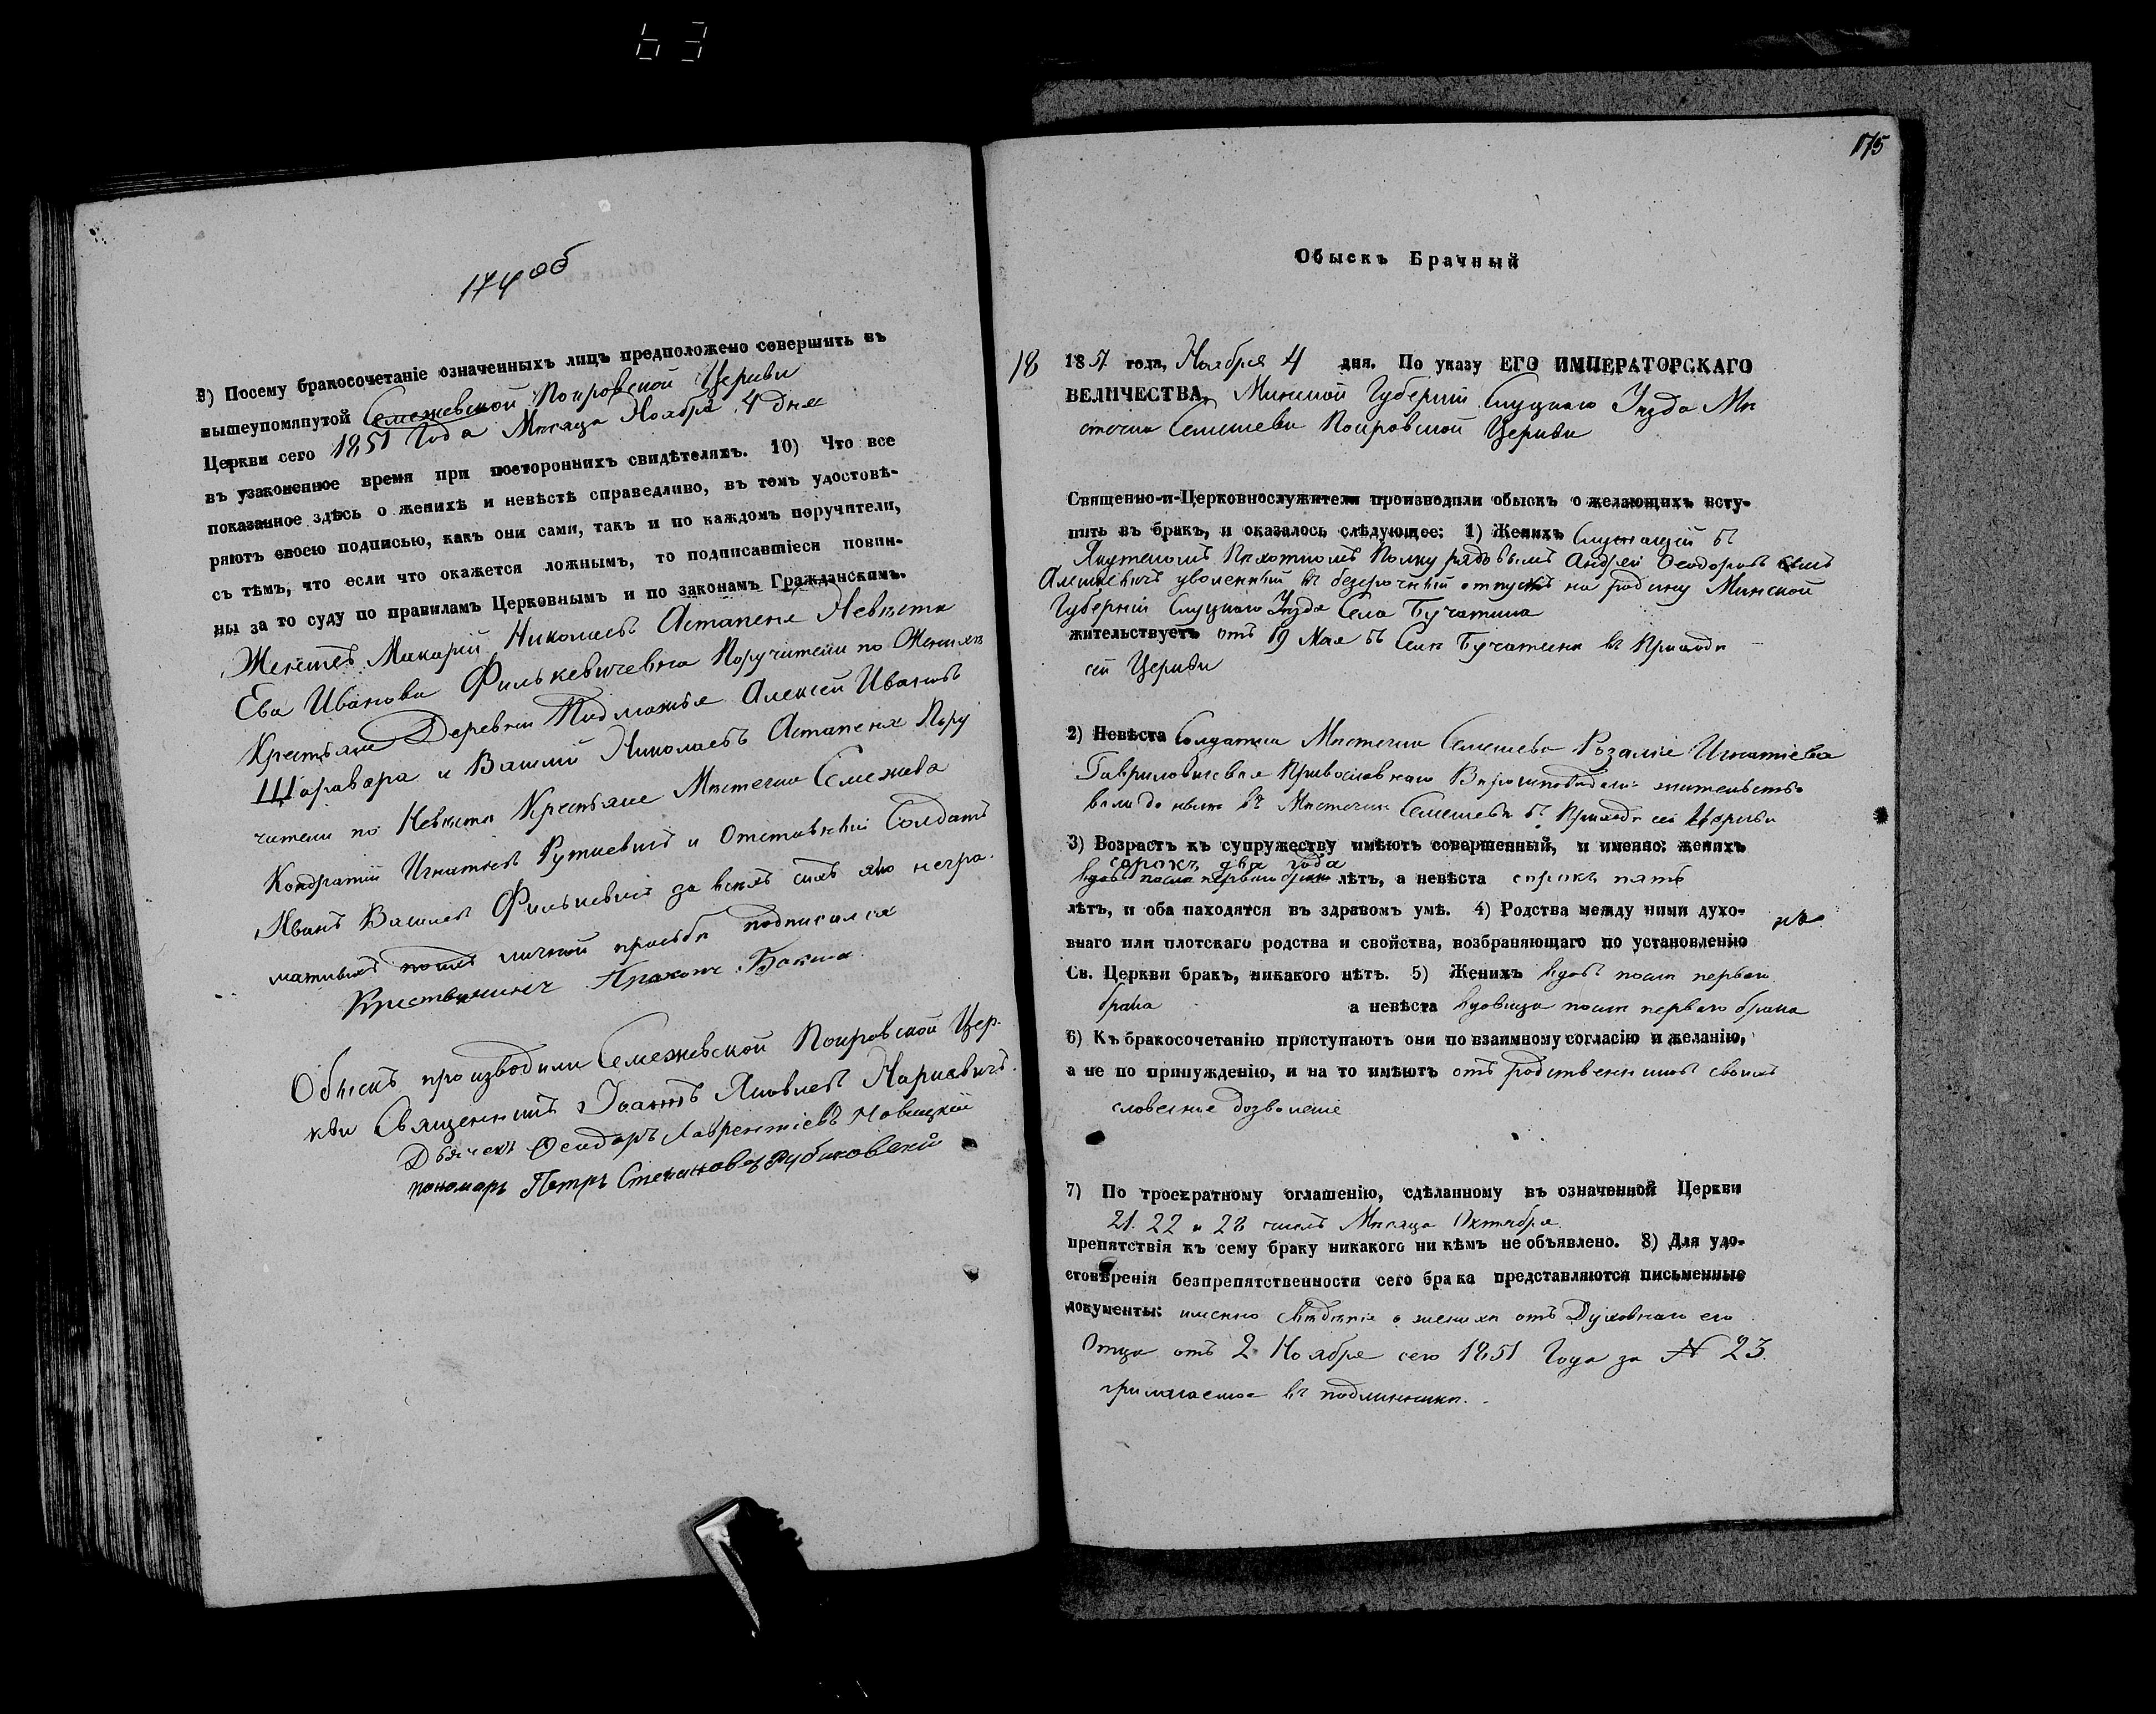 174 об
9) Посему бракосочетаніе означенныхъ лицъ предположено совершить въ
вышеупомянутой Семежевской Покровской Церкви
Церкви сего 1851 Года Мѣсяца Ноября 4 дня
въ узаконенное время при постороннихъ свидѣтеляхъ. 10) Что все
показанное здѣсь о женихѣ и невѣстѣ справедливо, въ томъ удостовѣ-
ряютъ своею подписью, какъ они сами, такъ и по каждомъ поручители,
съ тѣмъ, что если что окажется ложнымъ, то подписавшіеся повин-
ны за то суду по правиламъ Церковнымъ и по законамъ Гражданскимъ.
Женихъ Макарій Николаевъ Астапеня Невѣста
Ева Иванова Филькевичевна Поручители по Женихѣ
Крестьяне Деревни Подмажья Алексѣй Ивановъ
Шаравара и Василій Николаевъ Астапеня Пору
чители по Невѣстѣ Крестьяне Мѣстечка Семежева
Кондратій Игнатьевъ Руткевичъ и Отставный Солдатъ
Иванъ Васильевъ Филькевичъ за всѣхъ сихъ яко негра-
матныхъ по ихъ личной просьбѣ подписался
Крестьянинъ Пракопъ Бакша.
Обыскъ производили Семежевской Покровской Цер-
кви Священникъ Іоаннъ Яковлевъ Наркевичъ.
Дьячекъ Феодоръ Лаврентіевъ Новицкій
пономарь Петръ Степановъ Рубановскій
175
Обыскъ Брачный
18 1851 года, Ноября 4 дня. По указу ЕГО ИМПЕРАТОРСКАГО
ВЕЛИЧЕСТВА, Минской Губерніи Слуцкаго Уѣзда Мѣ
стечка Семежева Покровской Церкви
Священно-и-Церковнослужители производили обыскъ о желающихъ всту-
пить въ бракъ, и оказалось слѣдующее: 1) Женихъ Служащій въ
Якутскомъ Пѣхотномъ Полку рядовымъ Андрей Феодоровъ сынъ
уволенный въ безсрочный отпускъ на родину Минской
Губерніи Слуцкаго Уѣзда Села Бучатина
жительствуетъ отъ 19 Мая въ Селѣ Бучатинѣ въ Приходѣ
сей Церкви
2) Невѣста Солдатка Мѣстечка Семежева Розалія Игнатіева
Гавриловичевна Православнаго Вѣроисповѣданія жительство
вала до нынѣ въ Мѣстечкѣ Семежевѣ въ Приходѣ сей Церкви
3) Возрастъ къ супружеству имѣютъ совершенный, и именно: женихъ
сорокъ два года
вдовъ послѣ перваго брака лѣтъ, а невѣста сорокъ пять
лѣтъ, и оба находятся въ здравомъ умѣ. 4) Родства между ними духо-
внаго или плотскаго родства и свойства, возбраняющаго по установленію
Св. Церкви бракъ, никакого нѣтъ. 5) Женихъ вдовъ послѣ перваго
брака а невѣста вдовица послѣ перваго брака
6) Къ бракосочетанію приступаютъ они по взаимному согласію и желанію,
а не по принужденію, и на то имѣютъ отъ родственниковъ своихъ
словесное дозволеніе
7) По троекратному оглашенію, сдѣланному въ означенной Церкви
21. 22 и 28 числъ Мѣсяца Октября.
препятствія къ сему браку никакого ни кѣмъ не объявлено. 8) Для удо-
стовѣренія безпрепятственности сего брака представляются письменные
документы: именно свѣдѣніе о женихѣ отъ Духовнаго его
Отца отъ 2 Ноября сего 1851 Года за № 23.
прилагаемое въ подлинникѣ.